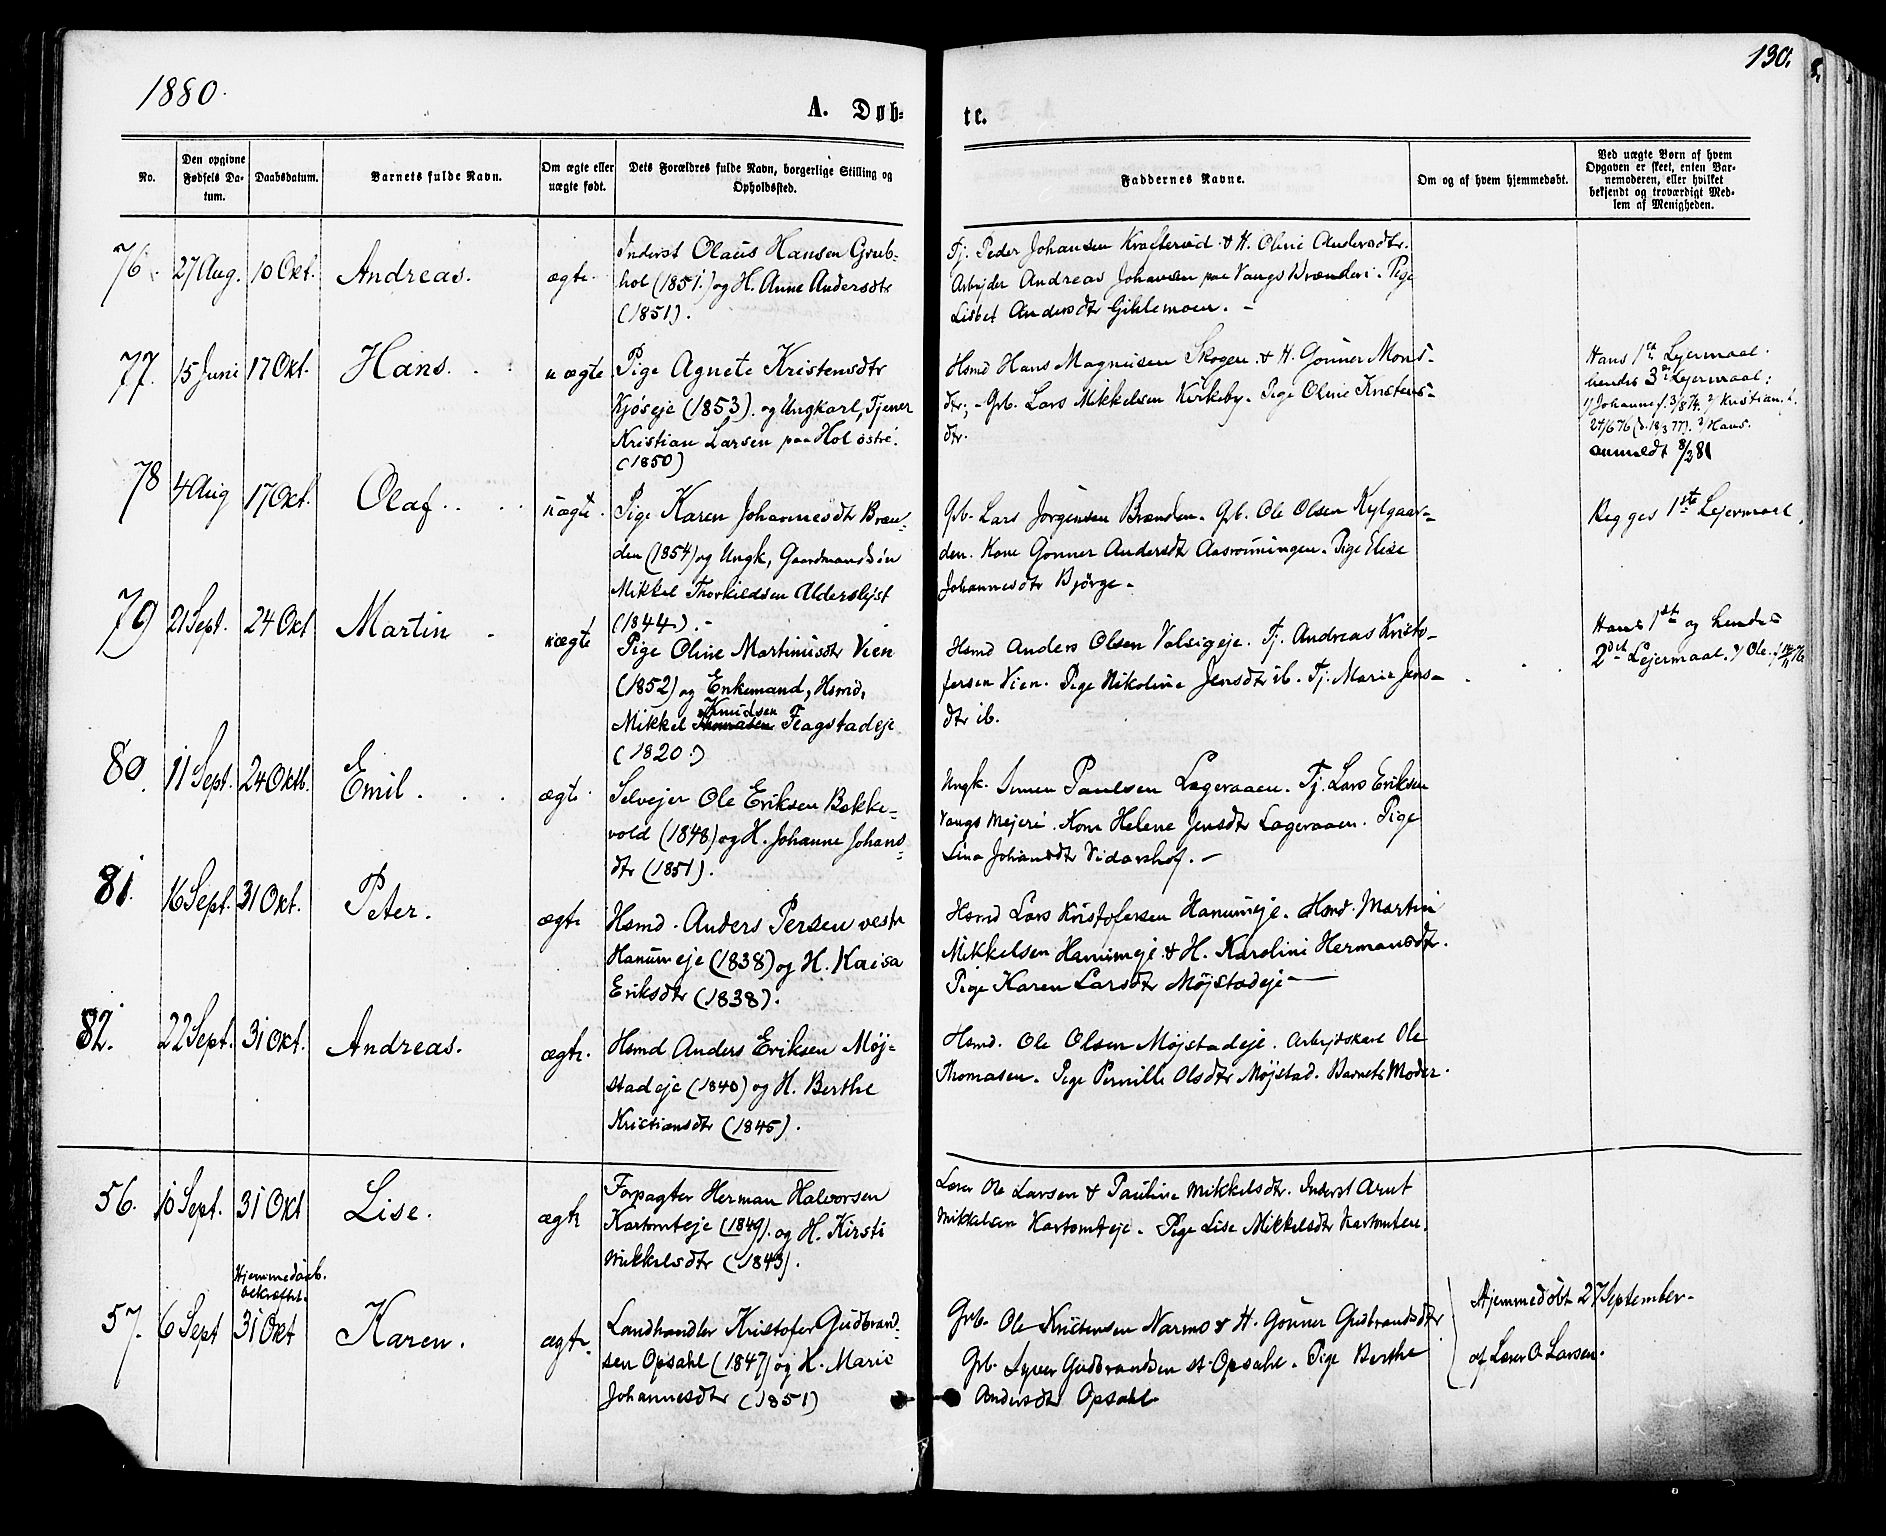 1880.
130.
A. Døb-
te.
No.
Den opgivne
Fødsels Da-
tum.
Daabsdatum.
Barnets fulde Navn.
Om ægte eller
uægte født.
Dets Forældres fulde Navn, borgerlige Stilling og
Opholdssted.
Faddernes Navne.
Om og af hvem hjemmedøbt.
Ved uægte Børn af hvem
Opgaven er skeet, enten Bar-
nemoderen, eller hvilket
bekjendt og troværdigt Med-
lem af Menigheden.
76. 27 Aug. 10 Okt. Andreas. ægte.
Inderst Olaus Hansen Grub-
hol (1851.) og H. Anne Andersdtr
(1851).
Tj. Peder Johansen & H. Oline Andersdtr.
Arbejder Andreas Johansen paa Vangs Brænderi. Pige
Lisbet Andersdtr Giklemoen. -
77. 15 Juni 17 Okt. Hans. uægte
Pige Agnete Kristensdtr
Kjøseje (1853). og Ungkarl, Tjener
Kristian Larsen paa Hol østre.
(1850)
Hsmd Hans Magnusen Skogen. & H. Gonner Mons-
dtr. - Grb. Lars Mikkelsen Kirkeby. Pige Oline Kristens-
dtr.
Hans 1ste Lejermaal.
hendes 3die Lejermaal:
1) Johanne f. 3/8 74. 2) Kristian f.
24/6 76 (d. 18/3 77). 3) Hans.
anmeldt 8/2 81
78 4 Aug 17 Okt. Olaf. uægte.
Pige Karen Johannesdtr Bræn-
den (1854) og Ungk, Gaardmandssøn
Mikkel Thorkildsen Alderslyst
(1844). -
Grb. Lars Jørgensen Brænden. Grb. Ole Olsen Kylgaar-
den. Kone Gonner Andersdtr Aasrønningen. Pige Elise
Johannesdtr Bjørge.
Begges 1ste Lejermaal.
79 21 Sept. 24 Okt Martin uægte
Pige Oline Martinusdtr Vien
(1852) og Enkemand, Hsmd,
Knudsen
Mikkel Thomasen Flagstadeje
(1820.)
Hsmd Anders Olsen Valsigeje. Tj. Andreas Kristo-
fersen Vien. Pige Nikoline Jensdtr ib. Tj. Marie Jens-
dtr ib.
Hans 1ste og hendes
2det Lejermaal. 1) Ole.
80. 11 Sept. 24 Oktb. Emil. ægte.
Selvejer Ole Eriksen Bække-
vold (1848) og H. Johanne Johans-
dtr (1851).
Ungk. Simen Paulsen Lageraaen. Tj. Lars Eriksen
Vangs Mejeri. Kone Helene Jensdtr Lageraaen. Pige
Lina Johansdtr Vidarshof. -
81. 16 Sept. 31 Okt. Peter. ægte
Hsmd. Anders Persen vestr
Hanumeje (1838) og H. Kaisa
Eriksdtr (1838).
Hsmd Lars Kristofersen Hanumeje. Hsmd. Martin
Mikkelsen Hanumeje & H. Karoline Hermansdtr.
Pige Karen Larsdtr Møjstadeje
82. 22 Sept. 31 Okt. Andreas. ægte.
Hsmd Anders Eriksen Møj-
stadeje (1840) og H. Berthe
Kristiansdtr (1845).
Hsmd. Ole Olsen Møjstadeje. Arbejdskarl Ole
Thomasen. Pige Pernille Olsdtr Møjstad. Barnets Moder.
56. 10 Sept. 31 Okt Lise. ægte
Forpagter Herman Halvorsen
Kartomteje (1849). og H. Kirsti
Mikkelsdtr (1843).
Lærer Ole Larsen & Pauline Mikkelsdtr. Inderst Arnt
Mikkelsen Kartomteje. Pige Lise Mikkelsdtr
Hjemmedaab.
bekræftet.
57. 6 Sept 31 Okt Karen. ægte.
Landhandler Kristofer Gudbrand-
sen Opsahl (1847) og H. Marie
Johannesdtr (1851)
Grb. Ole Kristensen Narmo & H. Gonner Gudbrandsdtr
Grb. Syver Gudbrandsen st. Opsahl. Pige Berthe
Andersdtr Opsahl.
Hjemmedøbt 27 September
af Lærer O. Larsen.